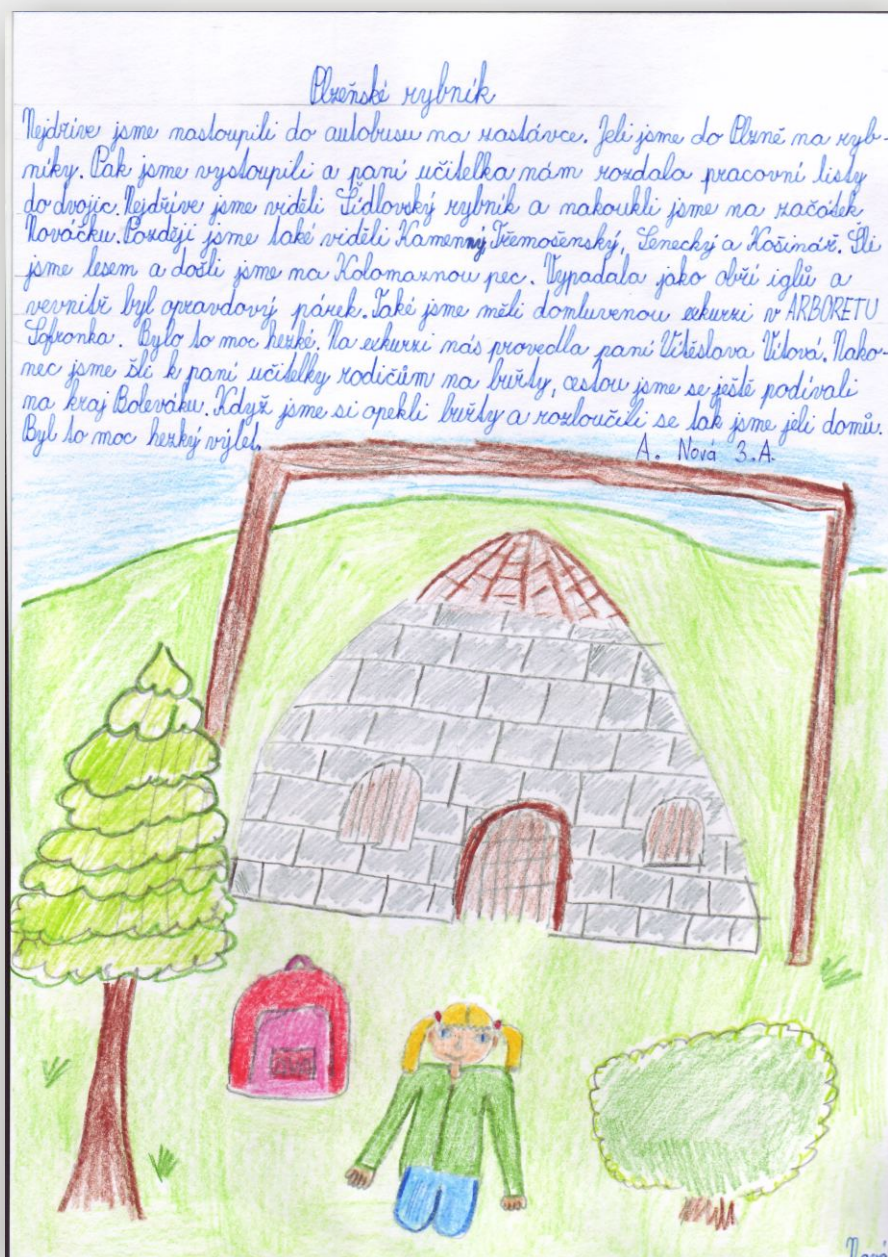 Plzeňské rybník
Nejdříve jsme nastoupili do autobusu na zastávce. Jeli jsme do Plzně na ryb-
níky. Pak jsme vystoupili a paní učitelka nám rozdala pracovní listy
do dvojic. Nejdříve jsme viděli Šídlovský rybník a nakoukli jsme na začátek
Nováčku. Později jsme také viděli Kamenný, Třemošenský, Senecký a Košinář. Šli
jsme lesem a došli jsme na Kolomaznou pec. Vypadala jako obří iglů a
vevnitř byl opravdový párek. Také jsme měli domluvenou exkurzi v ARBORETU
Sofronka. Bylo to moc hezké. Na exkurzi nás provedla paní Vítěslava Vítová. Nako-
nec jsme šli k paní učitelky rodičům na buřty, cestou jsme se ještě podívali
na kraj Boleváku. Když jsme si opekli buřty a rozloučili se tak jsme jeli domů.
Byl to moc hezký výlet.
A. Nová 3.A.
Nová